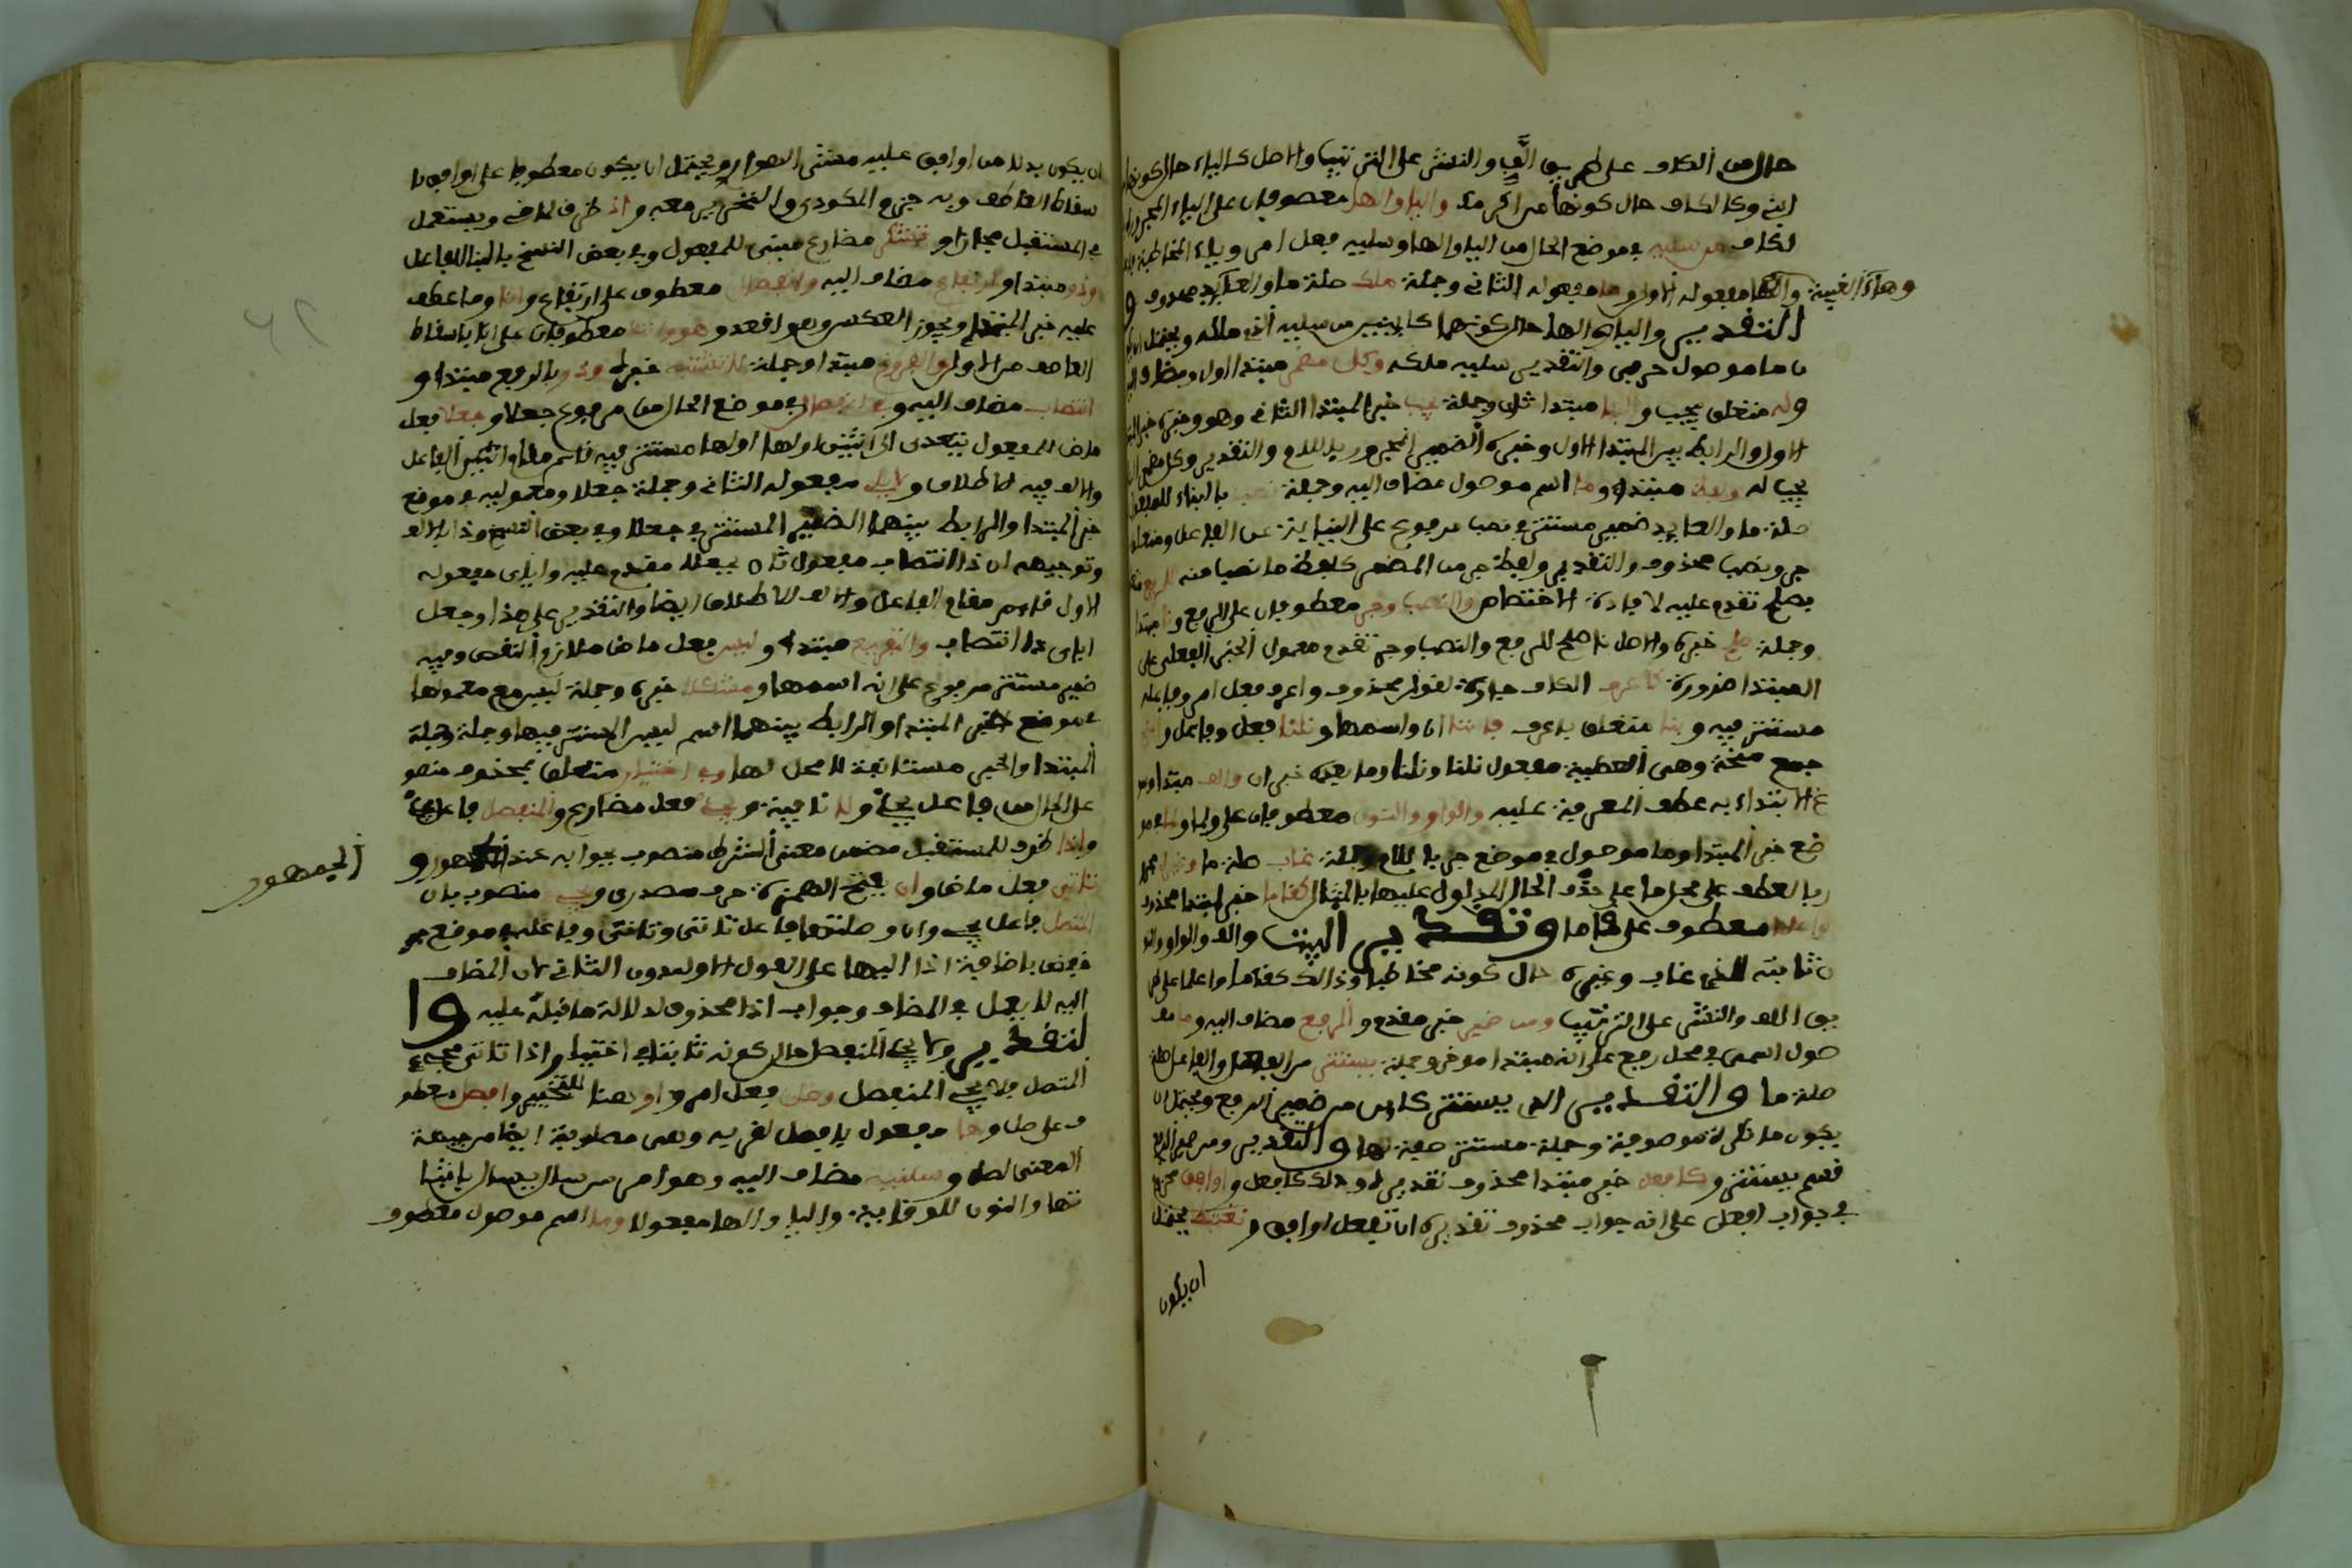 حال من الكاف على طريق اللف والنشر على الترتيب والاصل كالياء حال كونها
ابني وكالكاف حال كونها من اكرمك والياء والها معطوفان على الياء المجرورة
لكاف من سلنيه في موضع الحال من الياء والها وسلنيه فعل امر وياء المخاطبة
وهاء الغيبة والها مفعوله الاول وما مفعوله الثاني وجملة ملك صلة ما والعائد محذوف و
التقدير والياء والها حال كونهما كائنين من سلنيه الذي ملكه ويحتمل ان
ما موصول حرفي والتقدير سلنيه ملكه وكل مضمر مبتدا اول ومضاف
وله متعلق بيجب والبنا مبتدا ثان وجملة يجب خبر المبتدا الثاني وهو وخبره خبر
الاول والرابط بين المبتدا الاول وخبره الضمير المجرور باللام والتقدير وكل مضمر
يجب له ولفظ مبتدا وما اسم موصول مضاف اليه وجملة نصب بالبناء للمفعول
صلة ما والعائد ضمير مستتر في نصب مرفوع على النيابة عن الفاعل ومتعلق
جر ونصب محذوف والتقدير ولفظ ما جر من المضمر كلفظ ما نصب منه للرفع متعلق
بصلح تقدم عليه لافادة الاختصاص والنصب وجر معطوفان على الرفع ونا مبتدا
وجملة صلح خبره والاصل نا صلح للرفع والنصب وجر تقدم معمول الخبر الفعلي على
المبتدا ضرورة كاعرف الكاف جارة لقول محذوف واعرف فعل امر وفاعله
مستتر فيه وبنا متعلق باعرف فاننا ان واسمها ونلنا فعل وفاعل والمنح
جمع منحة وهي العطية مفعول نلنا ونلنا وما بعده خبر ان والف مبتدا وسو
غ الابتداء به عطف المعرفة عليه والواو والنون معطوفان على ولما ولما في مو
ضع خبر المبتدا وما موصول في موضع جر باللام وجملة غاب صلة ما وغيره مجرو
ر بالعطف على محل ما على حذف الحال المدلول عليها بالمثال كقاما خبر لمبتدا محذوف
واعلما معطوف على قاما وتقدير البيت والف والواو والنو
ن ثابتة للذي غاب وغيره حال كونه مخاطبا وذلك كقاما واعلما على طر
يق اللف والنشر على الترتيب ومن ضمير خبر مقدم والرفع مضاف اليه وما مو
صول اسمي في محل رفع على انه مبتدا مؤخر وجملة يستتر من الفعل والفاعل صلة
صلة ما والتقدير الذي يستتر كائن من ضمير الرفع ويحتمل ان
يكون ما نكرة موصوفة وجملة يستتر صفة لها والتقدير ومن ضمير الرفع
قسم يستتر وكافعل خبر مبتدا محذوف تقديره وذلك كافعل واوافق مجزوم
في جواب افعل على انه جواب محذوف تقديره ان تفعل اوافق ونغتبط يحتمل
ان يكون
ان يكون بدلا من اوافق عليه مشى الهواري ويحتمل ان يكون معطوفا على اوافق با
سقاط العاطف وبه جزم المكودي والشخ معه واذ ظرف لما في ويستعمل
في المستقبل مجازا وتشكر مضارع مبني للمفعول وفي بعض النسخ بالبنا للفاعل
وذو مبتدا وارتفاع مضاف اليه وانفصال معطوف على ارتفاع وانا وما عطف
عليه خبر المبتدا ويجوز العكس وهو اقعد وهو وانت معطوفان على انا باسقاط
العاطف من الاول والفروع مبتدا وجملة لا تشتبه خبره وذو بالرفع مبتدا و
انتصاب مضاف اليه وفي انفصال في موضع الحال من مرفوع جعلا وجعلا فعل
ماض للمفعول يتعدى الى اثنين اولها مستتر فيه قائم مقام الفاعل
والالف فيه للاطلاق واياي مفعوله الثاني وجملة جعلا ومعموليه في موضع
خبر المبتدا والرابط بينهما الضمير المستتر في جعلا وفي بعض النسخ وذا بالالف
وتوجيهه ان ذا انتصاب مفعول ثان بجعلا مقدم عليه واياي مفعوله
الاول قائم مقام الفاعل والالف للاطلاق ايضا والتقدير على هذا وجعل
اياي ذا انتصاب والتفريع مبتدا وليس فعل ماض ملازم النقص وفيه
ضمير مستتر مرفوع على انه اسمها ومشكلا خبره وجملة ليس مع معمولها
في موضع خبر المبتدا والرابط بينهما اسم ليس المستتر فيها وجملة
المبتدا والخبر مستانفة لا محل لها وفي اختيار متعلق بمحذوف منصو
على الحال من فاعل يجيء ولا نافية ويجيء فعل مضارع والمنفصل فاعل يجيء
واذا ظرف للمستقبل مضمن معنى الشرط منصوب بجوابه عند و
الجمهور
تاتى فعل ماض وان بفتح الهمزة حرف مصدري ويجيء منصوب بان
المتصل فاعل يجيء وان وصلتها فاعل تاتى وتاتى وفاعله في موضع جر
خفض باضافة اذا اليها على القول الاول بدون الثاني لان المضاف
اليه لا يعمل في المضاف وجواب اذا محذوف لدلالة ما قبله عليه وا
لتقدير ولا يجيء المنفصل حال كونه ثابتا في اختيار واذا تاتى مجيء
المتصل فلا يجيء المنفصل وصل فعل امر واو هنا للتخيير وافصل معطو
ف على صل وها مفعول بافصل لقربه وهي مطلوبة ايضا من جهة
المعنى لصل وسلنيه مضاف اليه وهو امر من سال يسال بافتيا
تها والنون للوقاية والياء والها مفعولا وما اسم موصول معطوف